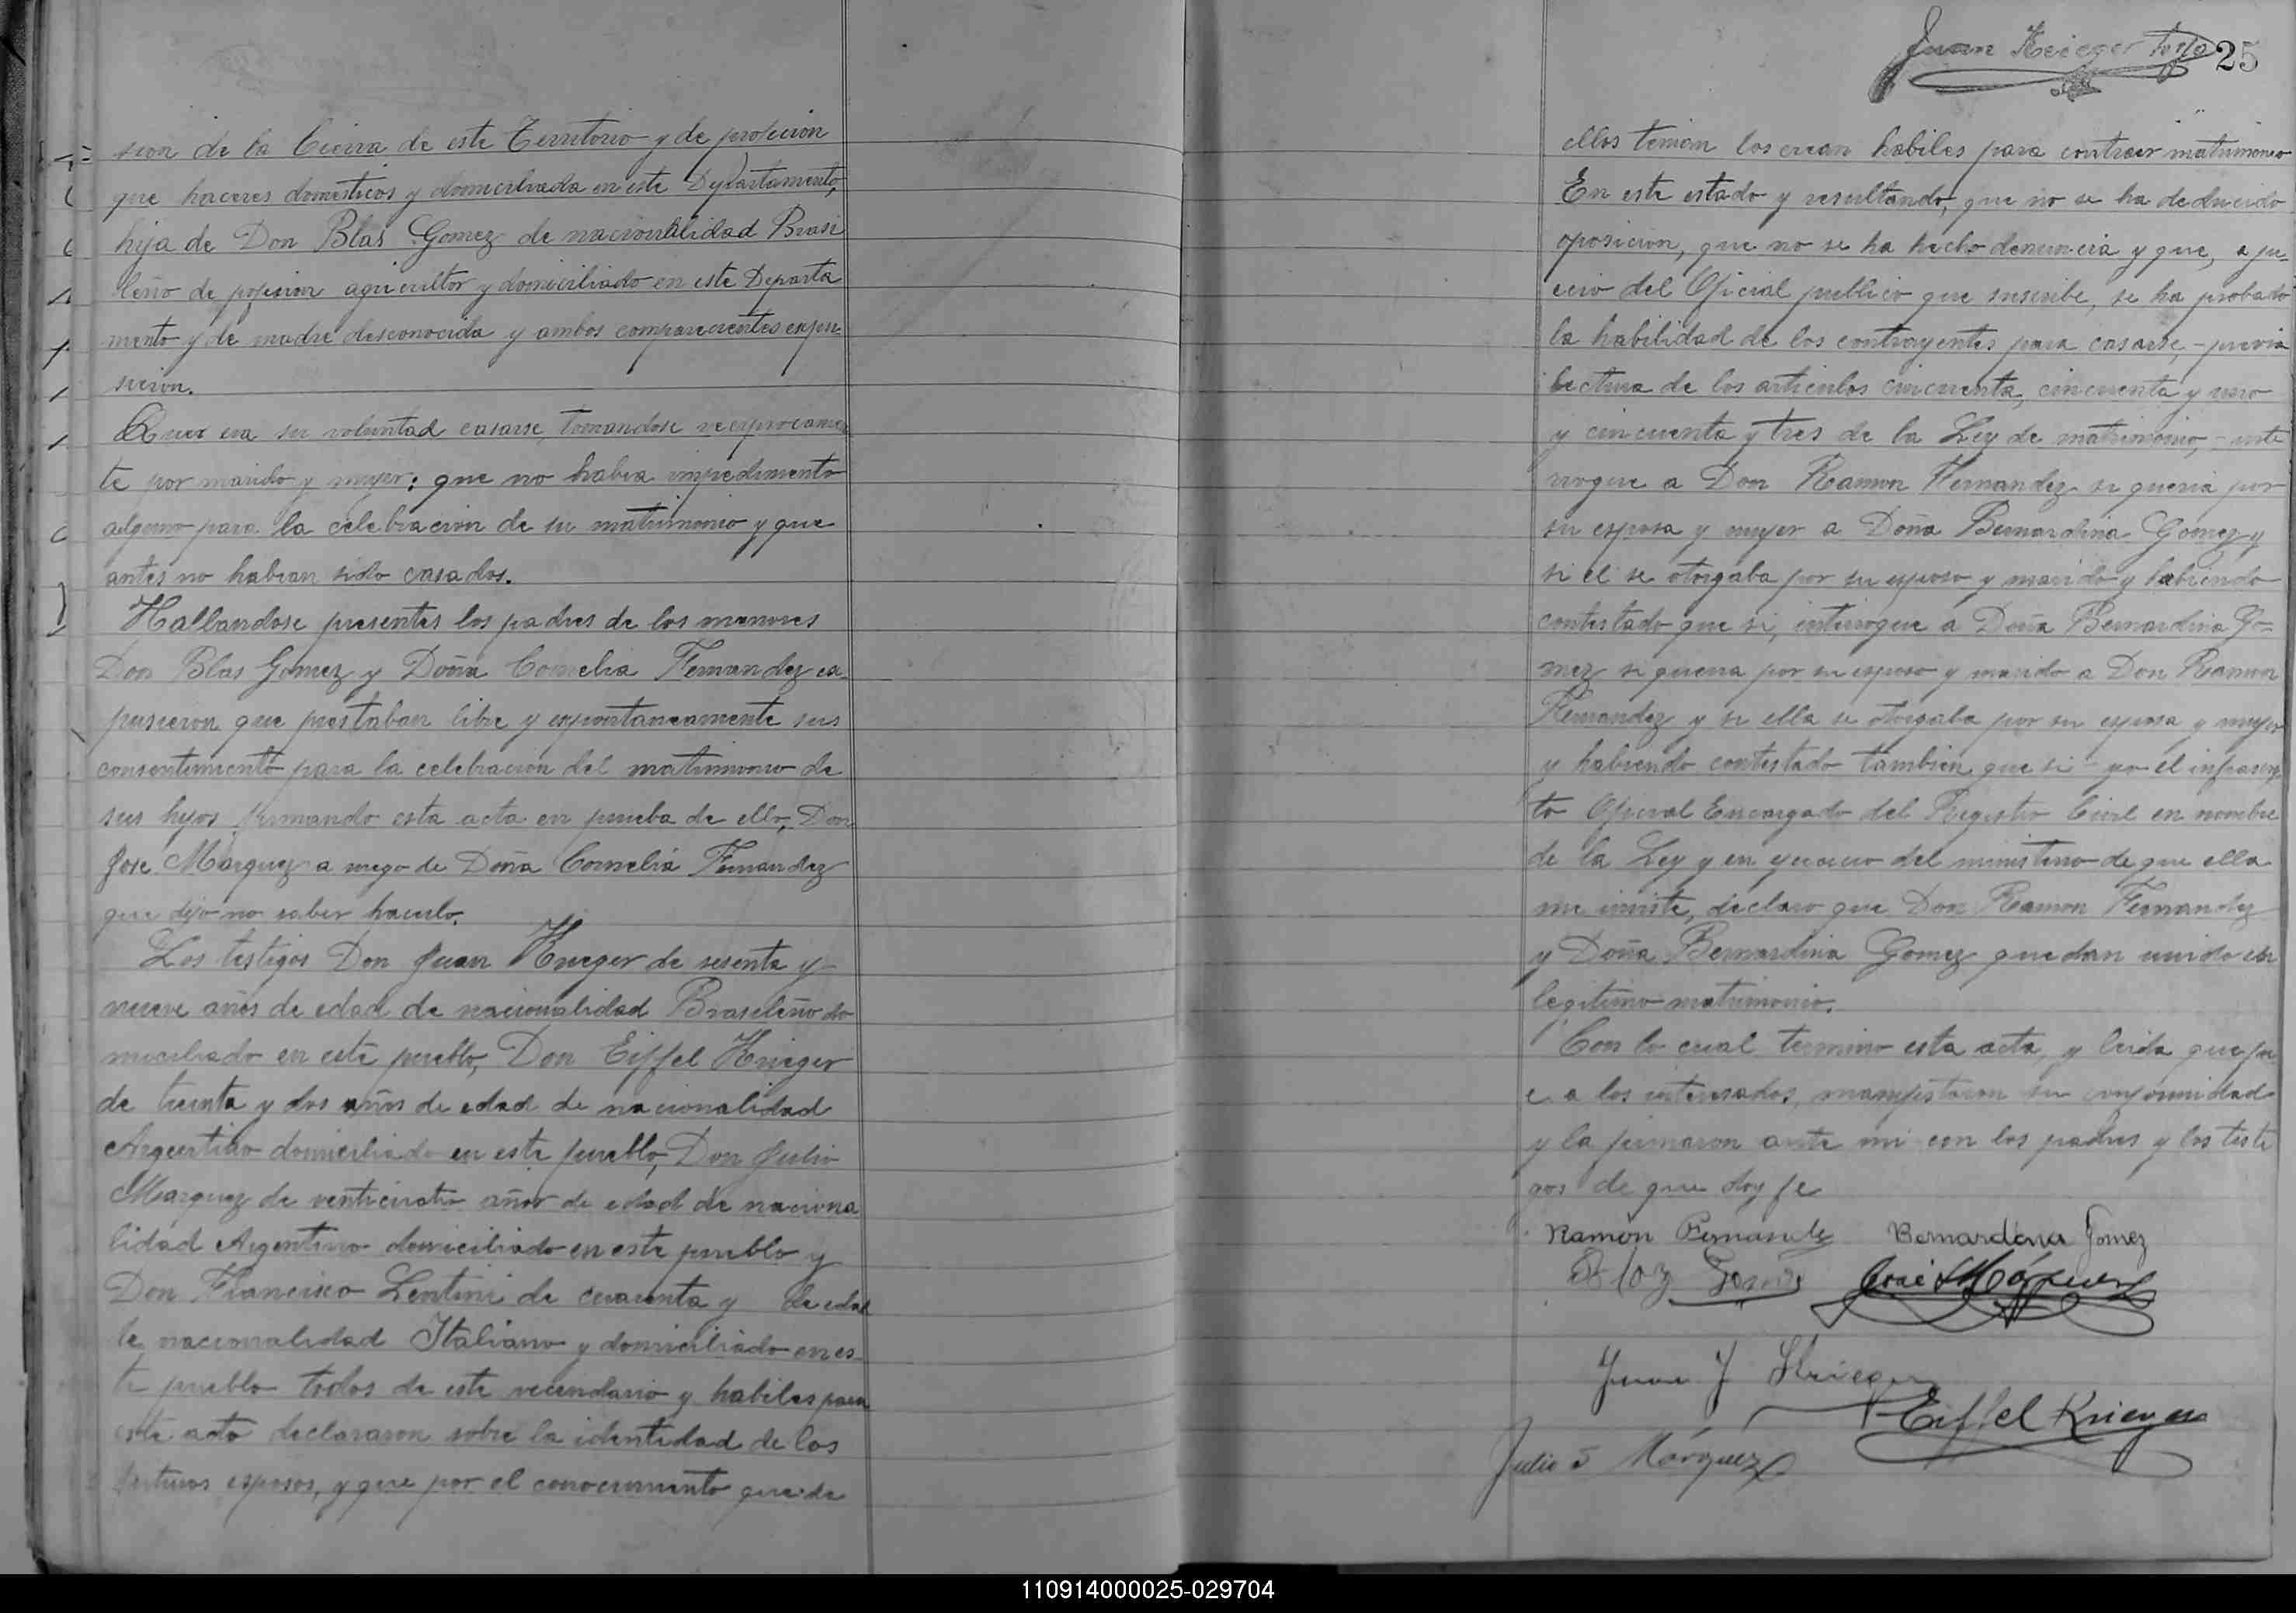 sion de la Cierra de este Territorio y de profecion
que haceres domesticos y domiciliada en este Departamento,
hija de Don Blas Gomez de nacionalidad Brasi
leño de pofesion agricultor y domiciliado en este Departa
mento y de madre desconocida y ambos comparecientes expu
sieron.
Que era su voluntad casarse, tomandose reciprocamen
te por marido y mujer; que no habia impedimento
alguno para la celebracion de su matrimonio y que
antes no habian sido casados.
Hallandose presentes los padres de los menores
Don Blas Gomez y Doña Cornelia Fernandez ex
pusieron que prestaban libre y espontaneamente sus
consentimiento para la celebracion del matrimonio de
sus hijos firmando esta acta en prueba de ello, Don
Jose Marquez a ruego de Doña Cornelia Fernandez
que dijo no saber hacerlo.
Los testigos Don Juan Krieger de sesenta y
nueve años de edad de nacionalidad Brasileño do
miciliado en este pueblo, Don Eiffel Krieger
de treinta y dos años de edad de nacionalidad
Argentino domiciliado en este pueblo, Don Julio
Marquez de venticuatro años de edad de naciona
lidad Argentino domiciliado en este pueblo y
Don Francisco Lentini de cuarenta y de edad
de nacionalidad Italiano y domiciliado en es
te pueblo todos de este vecindario y habiles para
este acto declararon sobre la identidad de los
futuros esposos, y que por el conocimiento que de
Juan Krieger 25
ellos tenian los crean habiles para contraer matrimonio
En este estado y resultando, que no se ha deducido
oposicion, que no se ha hecho denuncia y que, a jui
cio del Oficial publico que suscribe, se ha probado
la habilidad de los contrayentes para casarse, - previa
lectura de los articulos cincuenta, cincuenta y uno
y cincuenta y tres de la Ley de matrimonio, - inte
rrogue a Don Ramon Fernandez si queria por
su esposa y mujer a Doña Bernardina Gomez y
si el se otorgaba por su esposo y marido y habiendo
contestado que si, interrogue a Doña Bernardina Go=
mez si queria por su esposo y marido a Don Ramon
Fernandez y si ella se otorgaba por su esposa y mujer
y habiendo contestado tambien que si - yo el infrascrip
to Oficial Encargado del Registro Civil en nombre
de la Ley y en ejercicio del ministerio de que ella
me inviste, declaro que Don Ramon Fernandez
y Doña Bernardina Gomez quedan unido en
legitimo matrimonio.
Con lo cual termino esta acta, y leida que fu
e a los interesados, manifestaron su conformidad
y la firmaron ante mi con los padres y los testi
gos de que doy fe
Ramon Fernandez Bernardina Gomez
Blaz Gomez José Márquez
Juan J Krieger
Eiffel Krieger
Julio Márquez
110914000025-029704